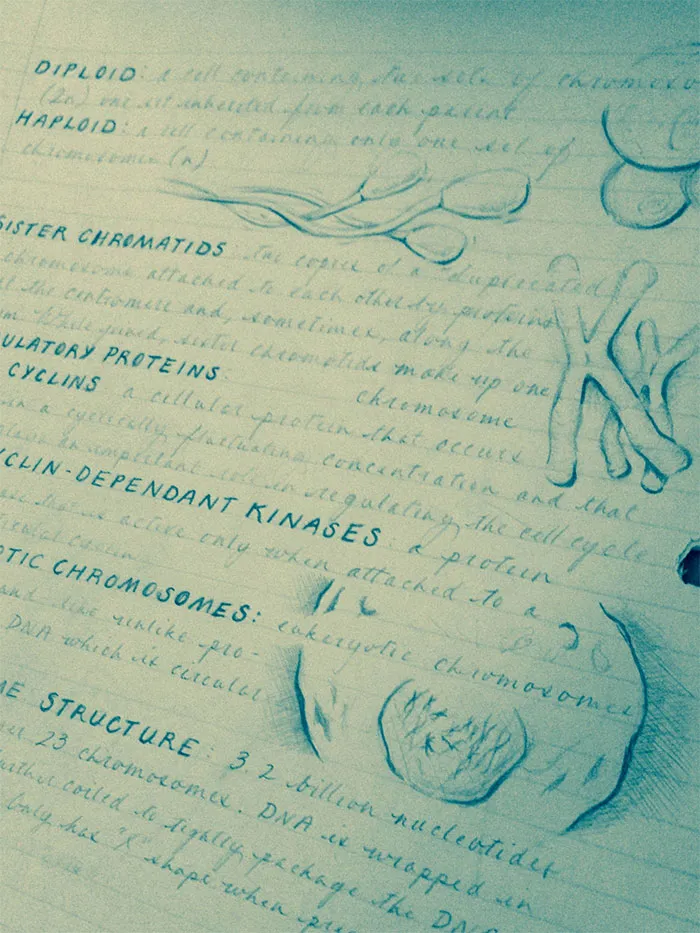 DIPLOID: a cell containing two sets of chromoso
(2n) one set inherited from each parent
HAPLOID: a cell containing only one set of
chromosomes (n)
SISTER CHROMATIDS: two copies of a duplicated
chromosome attached to each other by proteins
at the centromere and, sometimes, along the
While joined, sister chromatids make up one
chromosome
ULATORY PROTEINS:
CYCLINS a cellular protein that occurs
in a cyclically fluctuating concentration and that
plays an important role in regulating the cell cycle
YCLIN-DEPENDANT KINASES: a protein
that is active only when attached to a
cyclin
OTIC CHROMOSOMES: eukaryotic chromosomes
and are unlike pro-
DNA which is circular
ME STRUCTURE: 3.2 billion nucleotides
over 23 chromosomes. DNA is wrapped in
further coiled to tightly package the DNA
only has "X" shape when